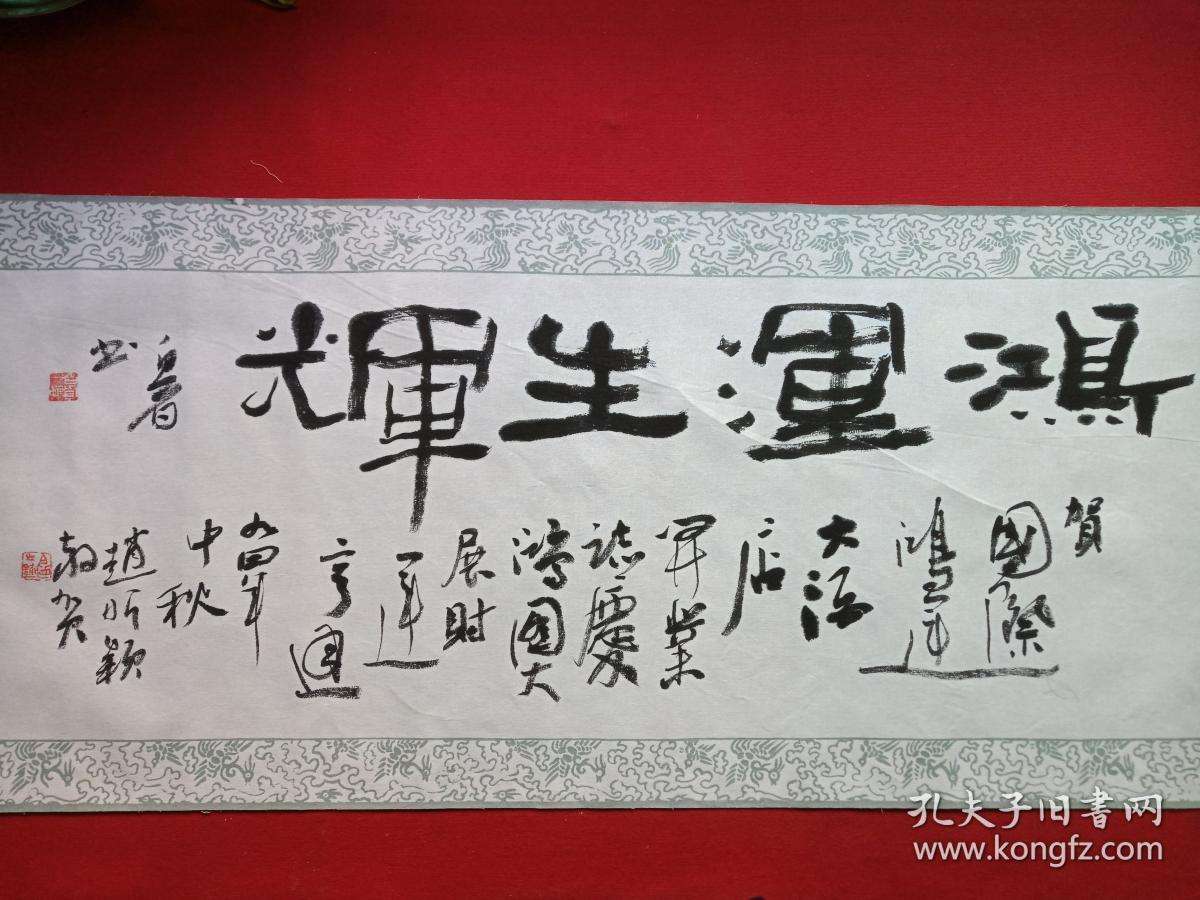 鴻運生輝
書
賀
國際
鴻運
大酒
店
開業
誌慶
鴻圖大
展財
運
亨通
九四年
中秋
趙
敬賀
孔夫子旧書网
www.kongfz.com